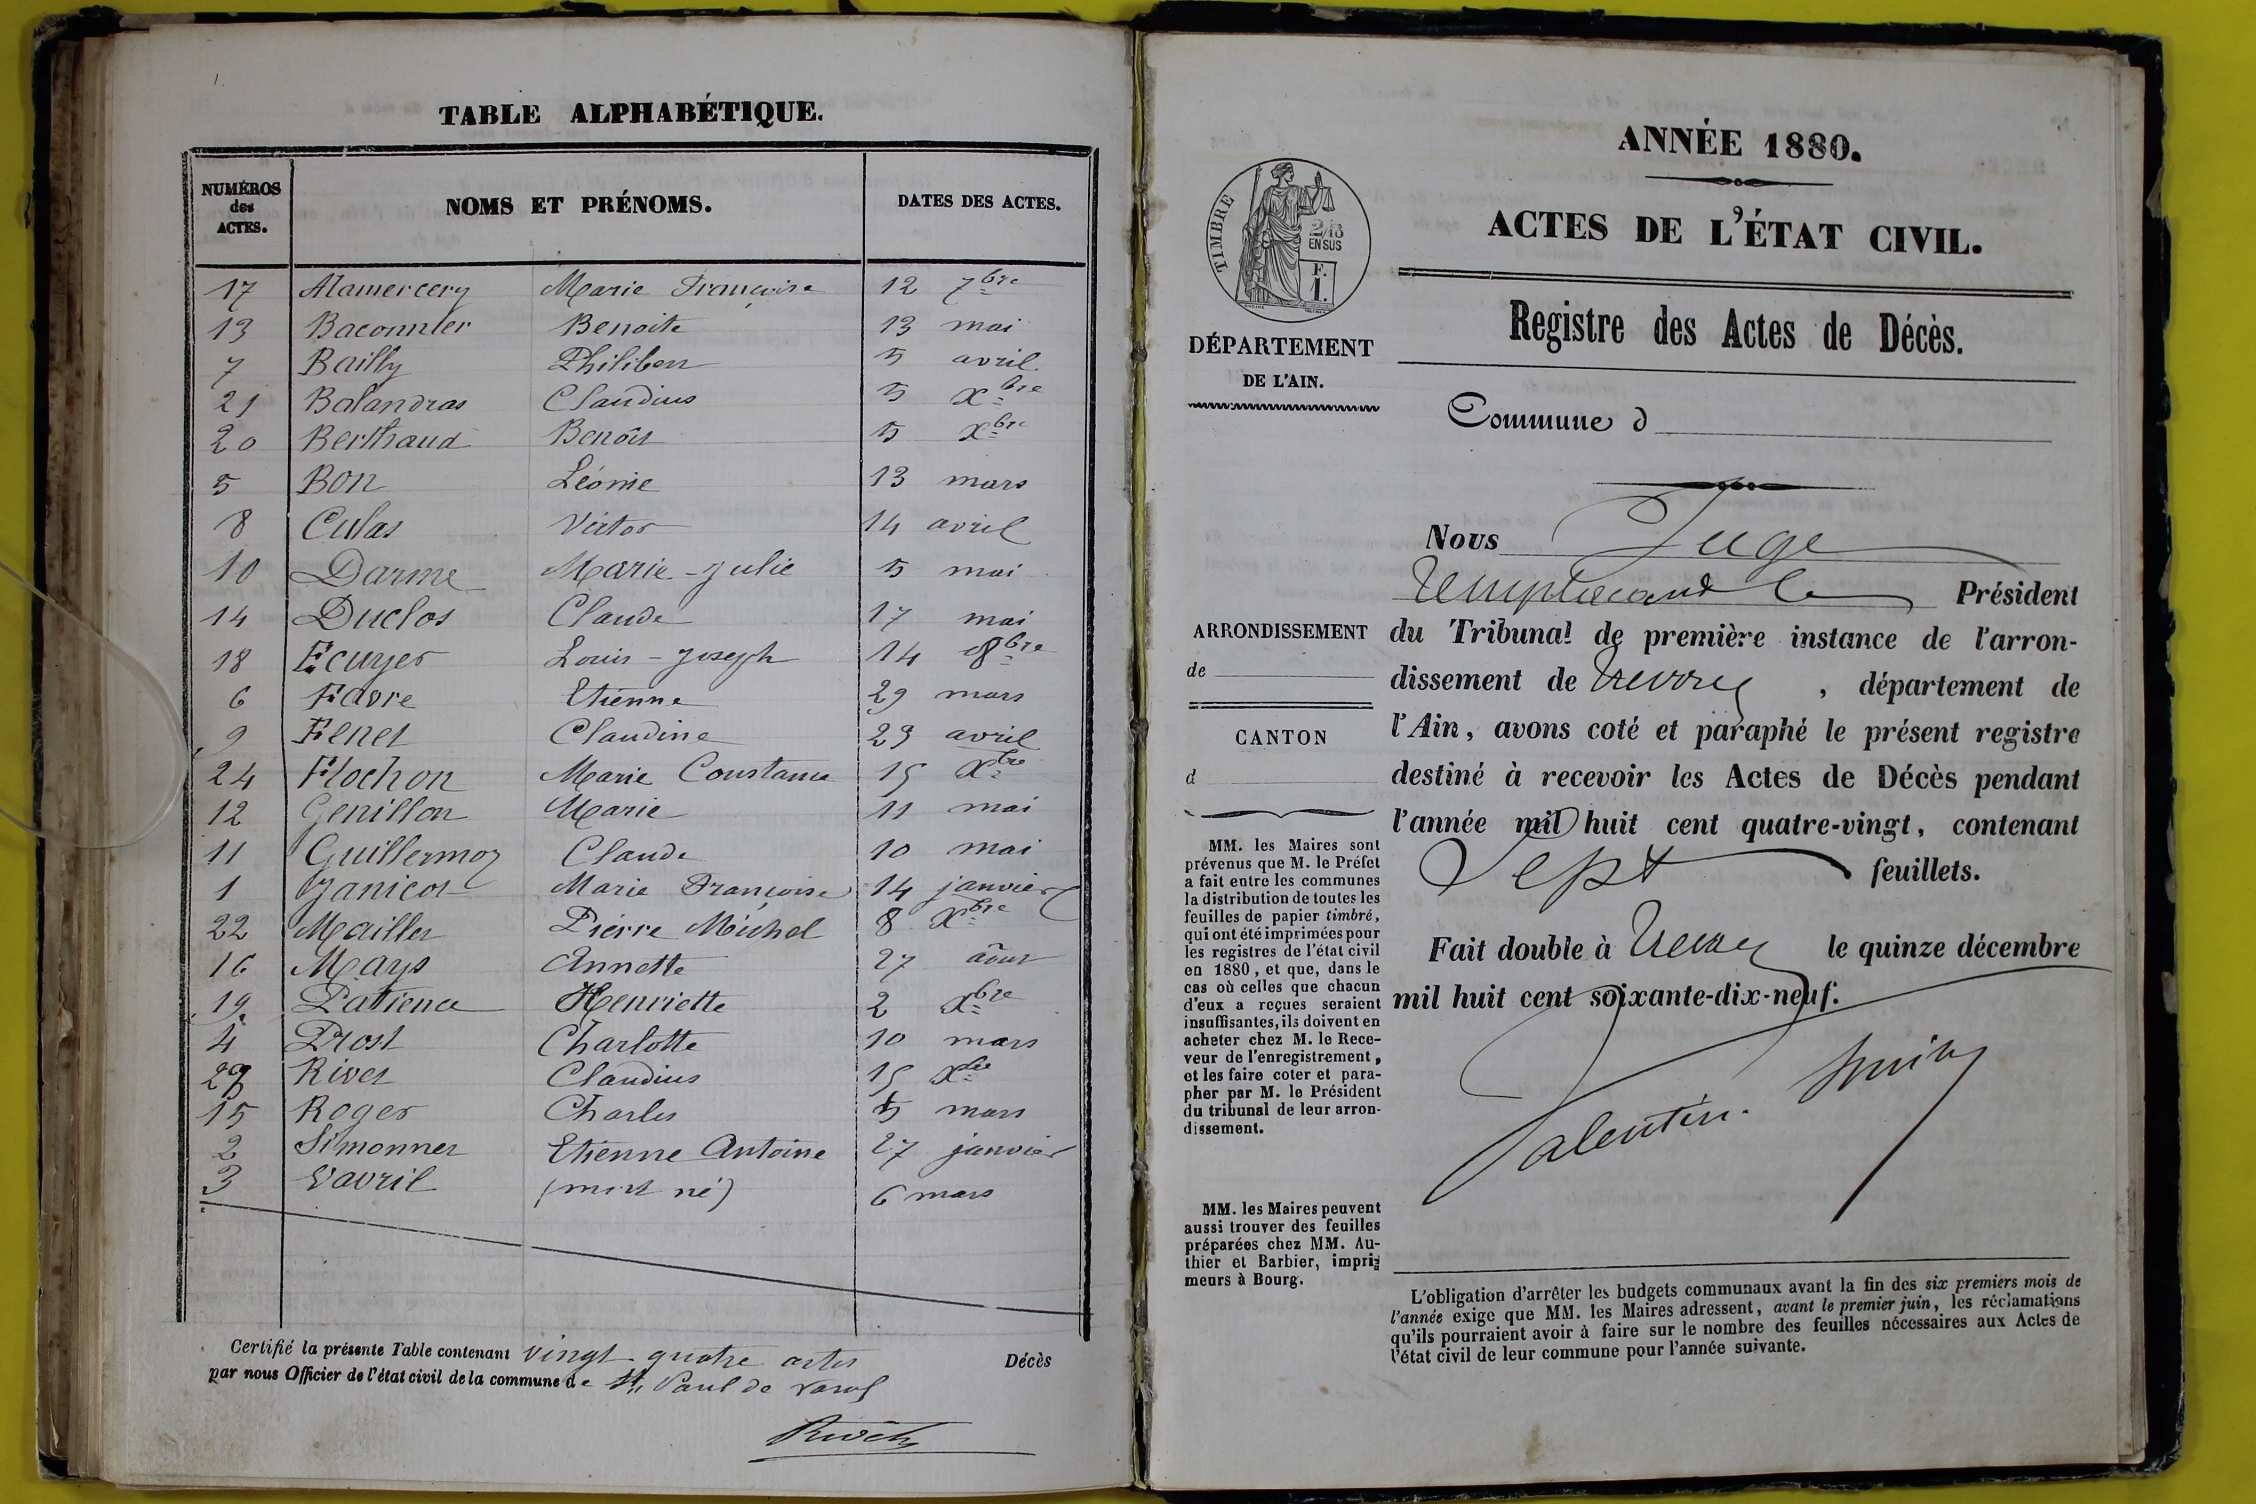 TABLE ALPHABÉTIQUE.
NUMÉROS des ACTES.
NOMS ET PRÉNOMS.
DATES DES ACTES.
17 Alamercery Marie Françoise 12 7bre
13 Baconnier Benoite 13 mai
7 Bailly Philiben 5 avril
21 Balandras Claudius 5 Xbre
20 Berthaud Benoit 5 Xbre
5 Bon Léonie 13 mars
8 Culas Victor 14 avril
10 Darme Marie-Julie 5 mai
14 Duclos Claude 17 mai
18 Ecuyer Louis-Joseph 14 8bre
6 Favre Etienne 29 mars
9 Fenet Claudine 23 avril
24 Flochon Marie Constance 15 Xbre
12 Genillon Marie 11 mai
11 Guillermoz Claude 10 mai
1 Janicot Marie Françoise 14 janvier
22 Maillet Pierre Michel 8 Xbre
16 Mays Annette 27 août
19 Patience Henriette 2 Xbre
4 Prost Charlotte 10 mars
23 Rivet Claudius 15 Xbre
15 Roger Charles 5 mars
2 Simonnet Etienne Antoine 27 janvier
3 Vavril (mort né) 6 mars
Certifié la présente Table contenant vingt-quatre actes Décès
par nous Officier de l'état civil de la commune de St Paul de Varax
ANNÉE 1880.
ACTES DE L'ÉTAT CIVIL.
Registre des Actes de Décès.
Commune d
TIMBRE
2/10
EN SUS
F.
1.
DÉPARTEMENT
DE L'AIN.
ARRONDISSEMENT
de
CANTON
d
MM. les Maires sont
prévenus que M. le Préfet
a fait entre les communes
la distribution de toutes les
feuilles de papier timbré,
qui ont été imprimées pour
les registres de l'état civil
en 1880, et que, dans le
cas où celles que chacun
d'eux a reçues seraient
insuffisantes, ils doivent en
acheter chez M. le Rece-
veur de l'enregistrement,
et les faire coter et para-
pher par M. le Président
du tribunal de leur arron-
dissement.
MM. les Maires peuvent
aussi trouver des feuilles
préparées chez MM. Au-
thier et Barbier, impri-
meurs à Bourg.
Nous Juge
remplaçant le Président
du Tribunal de première instance de l'arron-
dissement de Trévoux, département de
l'Ain, avons coté et paraphé le présent registre
destiné à recevoir les Actes de Décès pendant
l'année mil huit cent quatre-vingt, contenant
Sept feuillets.
Fait double à Trévoux le quinze décembre
mil huit cent soixante-dix-neuf.
Valentin
L'obligation d'arrêter les budgets communaux avant la fin des six premiers mois de
l'année exige que MM. les Maires adressent, avant le premier juin, les réclamations
qu'ils pourraient avoir à faire sur le nombre des feuilles nécessaires aux Actes de
l'état civil de leur commune pour l'année suivante.